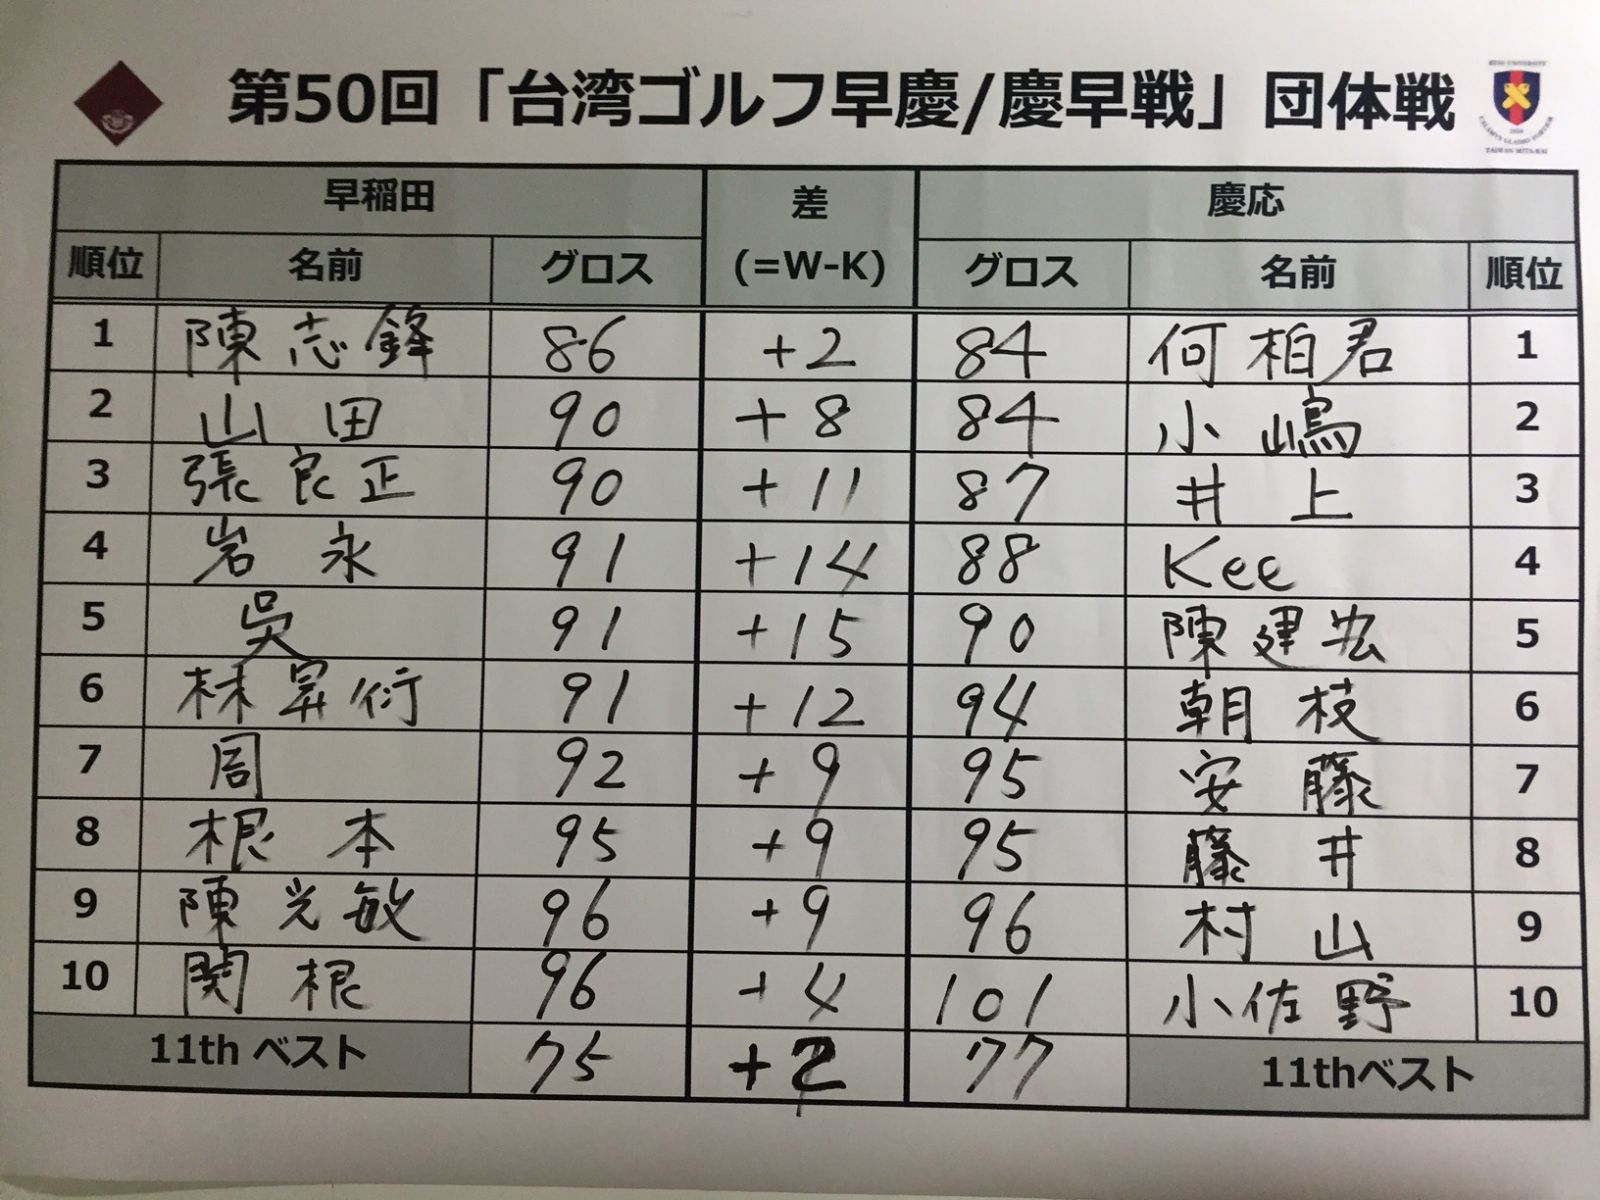 第50回「台湾ゴルフ早慶/慶早戦」団体戦
早稲田 差 慶応
順位 名前 グロス (=W-K) グロス 名前 順位
1 陳志鋒 86 +2 84 何柏君 1
2 山田 90 +8 84 小嶋 2
3 張良正 90 +11 87 井上 3
4 岩永 91 +14 88 Kee 4
5 吳 91 +15 90 陳建宏 5
6 林昇衍 91 +12 94 朝枝 6
7 周 92 +9 95 安藤 7
8 根本 95 +9 95 藤井 8
9 陳光敏 96 +9 96 村山 9
10 関根 96 +4 101 小佐野 10
11th ベスト 75 +2 77 11thベスト